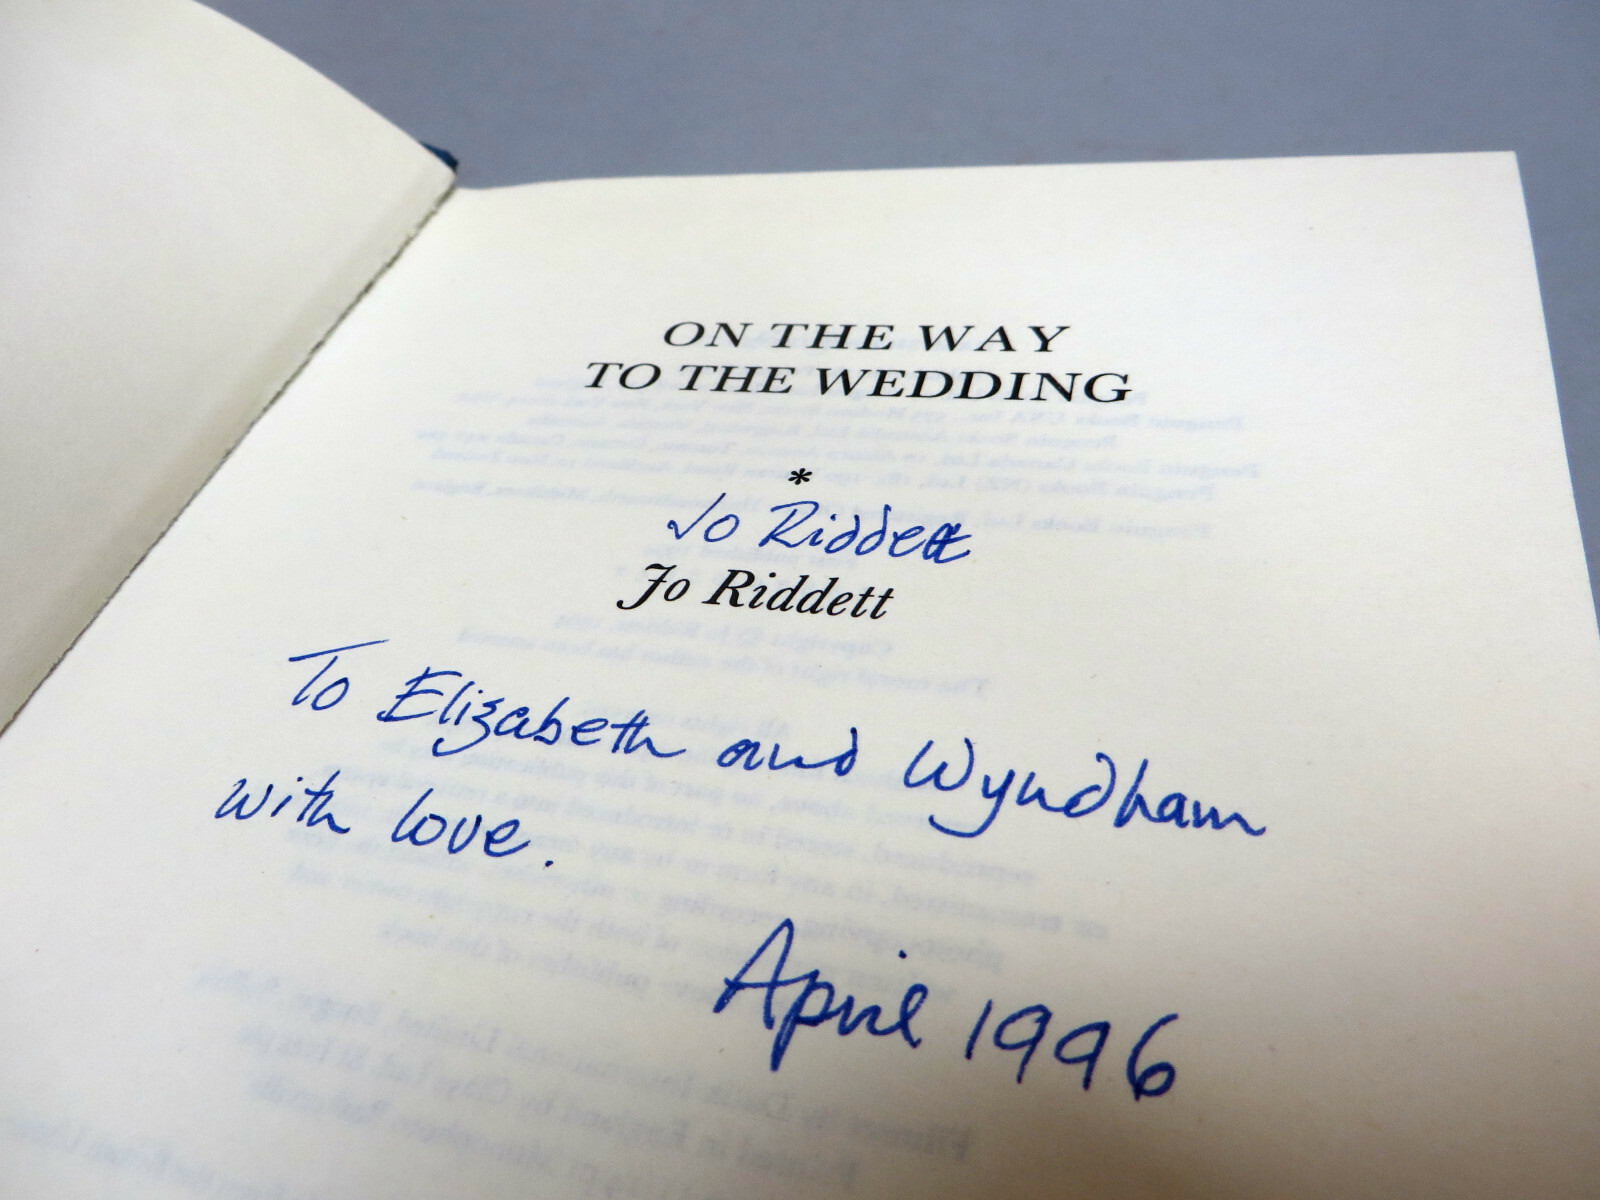 ON THE WAY
TO THE WEDDING
*
Jo Riddett
Jo Riddett
To Elizabeth and Wyndham
with love.
April 1996